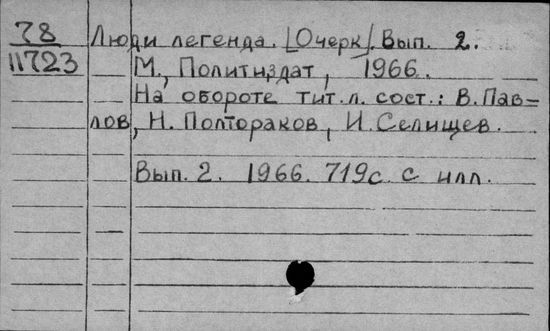 78
11723
Люди легенда. [Очерк]. Вып. 2.
М., Политиздат, 1966.
На обороте тит. л. сост.: В. Пав-
лов, Н. Полтораков, И. Селищев.
Вып. 2. 1966. 719с. с илл.